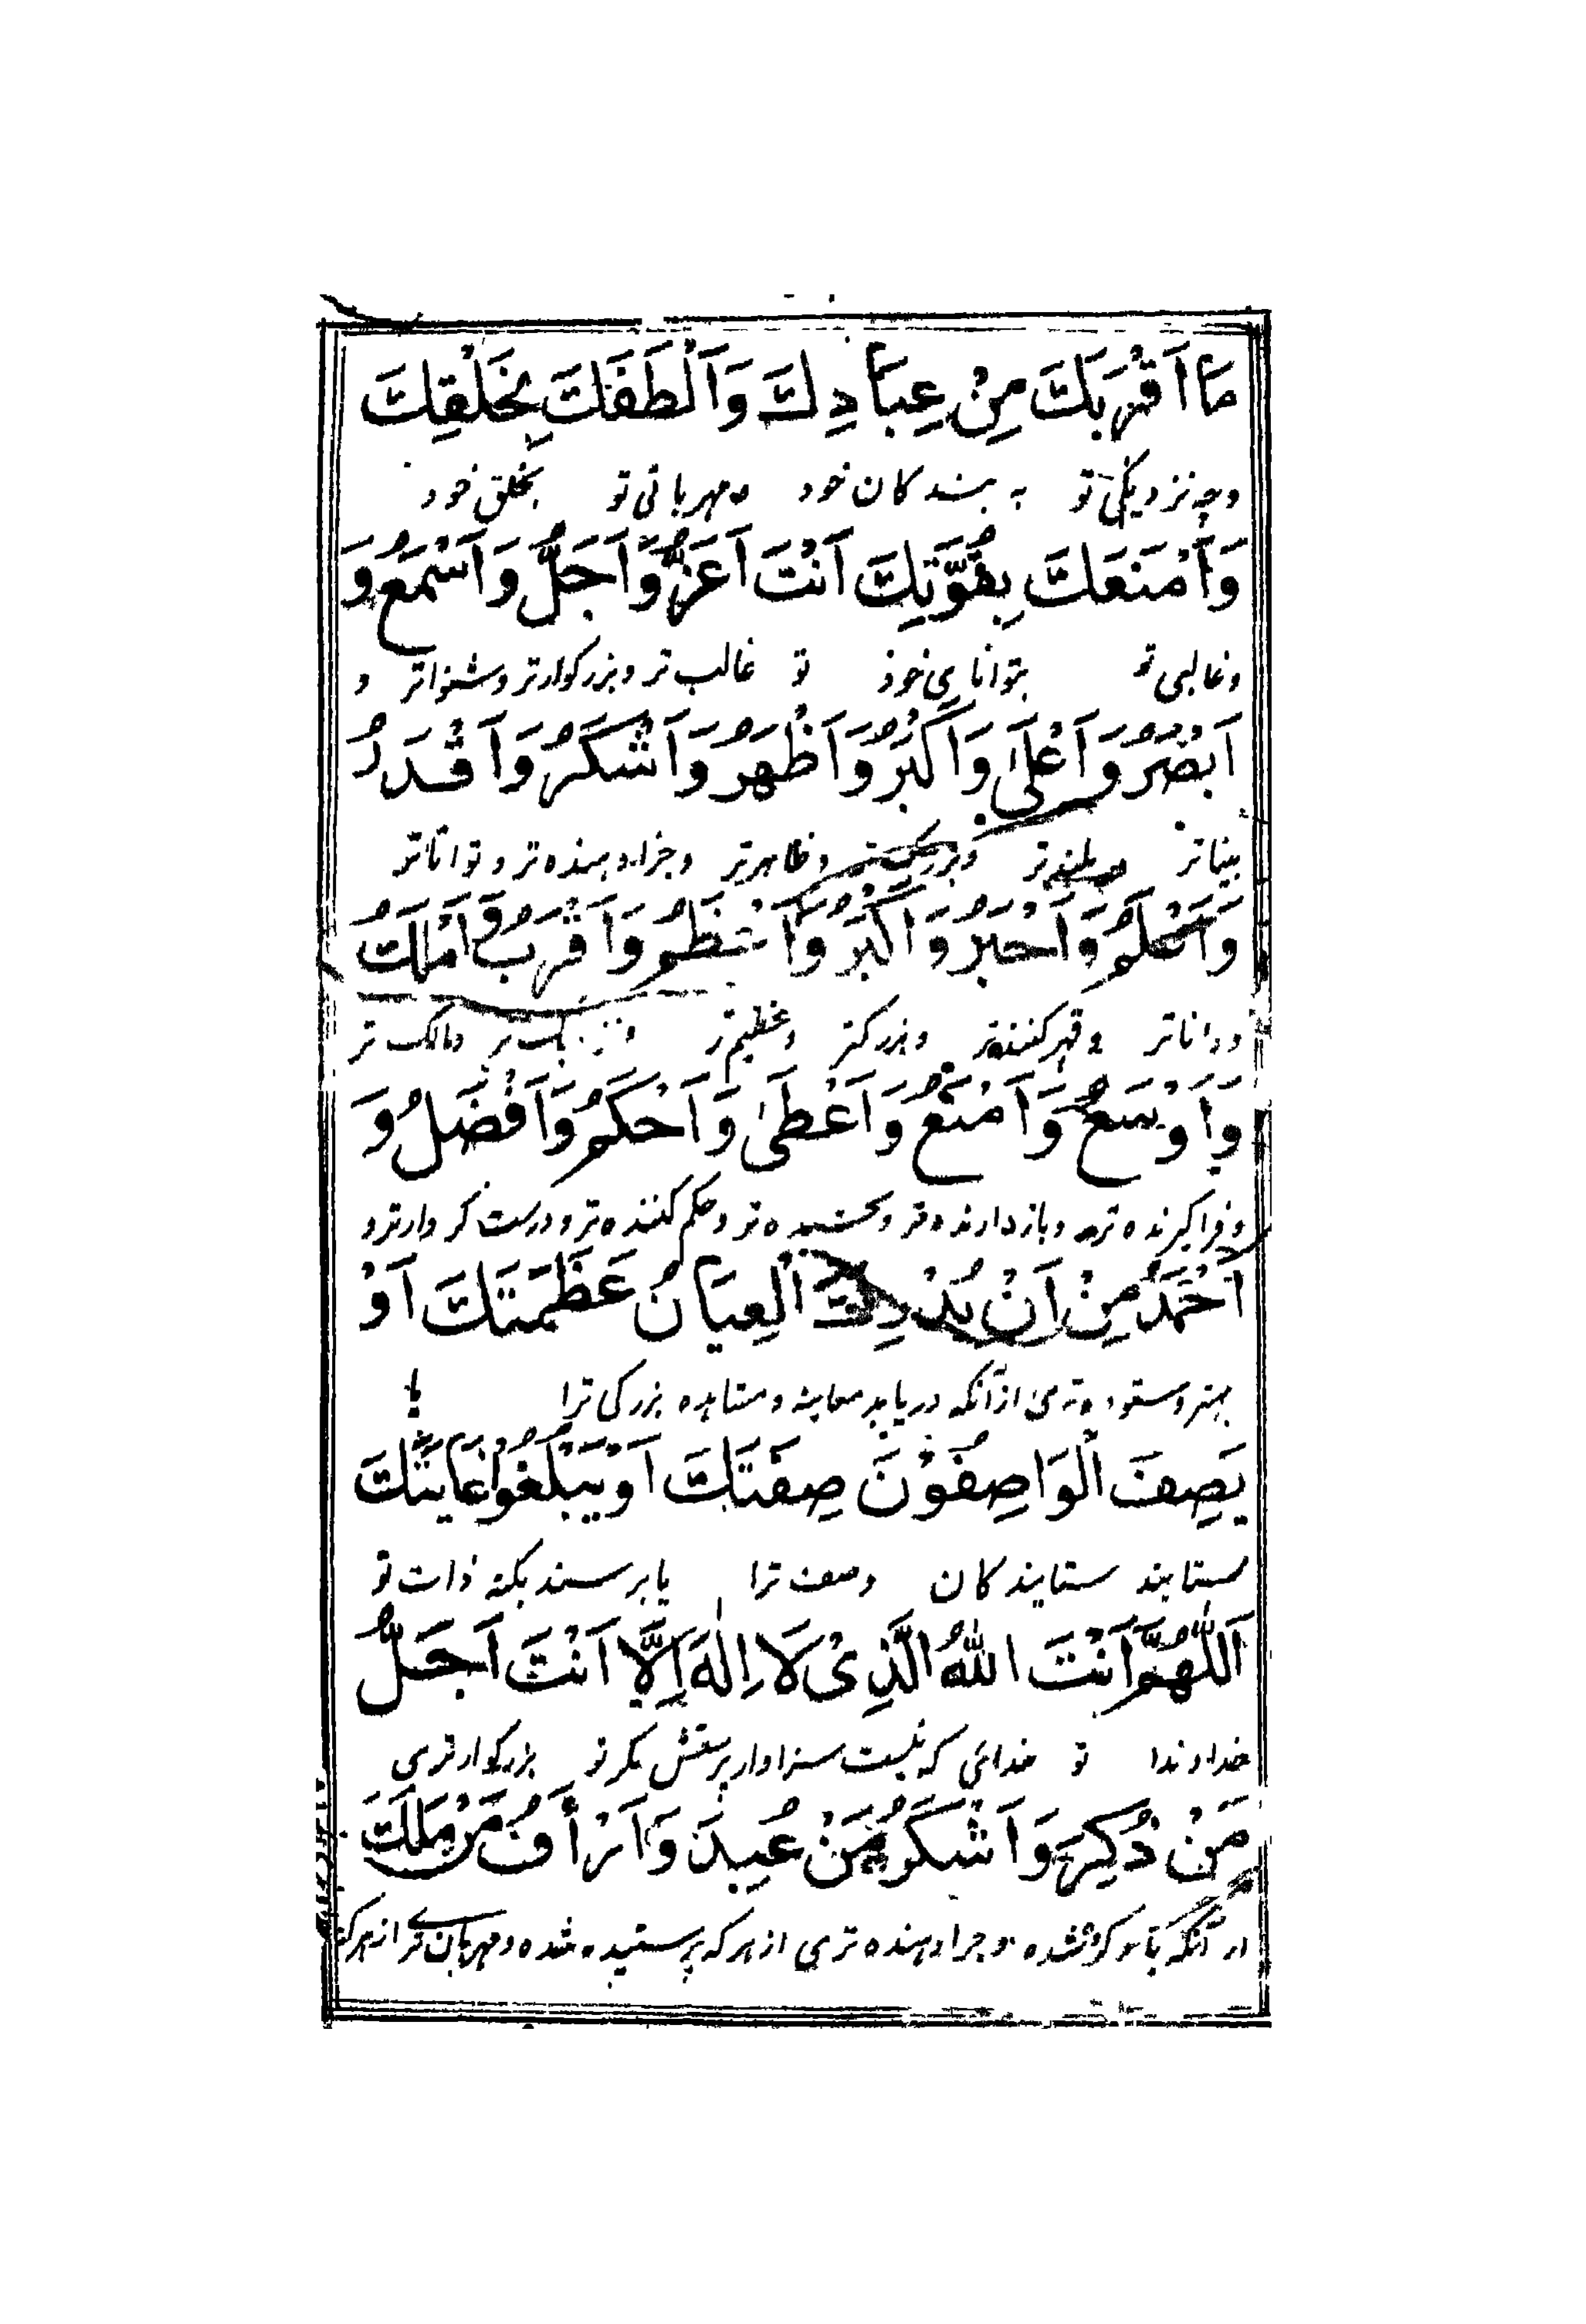 مَا اَقْرَبَكَ مِنْ عِبَادِكَ وَاَلْطَفَكَ بِخَلْقِكَ
وچه نزدیکی تو به بندکان خود و مهربانی تو بخلق خود
وَاَمْنَعَكَ بِقُوَّتِكَ اَنْتَ اَعَزُّ وَاَجَلُّ وَاَسْمَعُ وَ
وغالبی تو بتوانایی خود تو غالب تر و بزرکوارتر و شنواتر و
اَبْصَرُ وَاَعْلٰى وَاَكْبَرُ وَاَظْهَرُ وَاَشْكَرُ وَاَقْدَرُ
بیناتر و بلندتر وبزرکتر وظاهرتر وجزادهنده تر و تواناتر
وَاَعْلَمُ وَاَجْبَرُ وَاَكْبَرُ وَاَعْظَمُ وَاَقْرَبُ وَ اَمْلَكُ
وداناتر وقهرکننده‌تر وبزرکتر وعظیم‌تر ومالک تر
وَاَوْسَعُ وَاَمْنَعُ وَاَعْطٰى وَاَحْكَمُ وَاَفْضَلُ وَ
وفراکیرنده تر وبازدارنده تر وبخشنده تر وحکم کننده تر و درست کردارتر و
اَحْمَدُ مِنْ اَنْ يُدْرِكَ الْعِيَانُ عَظَمَتَكَ اَوْ
بهتر وستوده تری ازآنکه دریابد معاینه ومشاهده بزرکی ترا یا
يَصِفَ الْوَاصِفُوْنَ صِفَتَكَ اَوْ يَبْلُغُوْا غَايَتَكَ
ستایند ستایندکان وصف ترا یا برسند بکنه ذات تو
اَللّٰهُمَّ اَنْتَ اللّٰهُ الَّذِىْ لَا اِلٰهَ اِلَّا اَنْتَ اَجَلُّ
خداوندا تو خدائی که نیست سزاوار پرستش مکر تو بزرکوارتری
مَنْ ذُكِرَ وَاَشْكَرُ مَنْ عُبِدَ وَاَرْأَفُ مَنْ مَلَكَ
از آنکه یاد کرده شده و جزادهنده تری از هر که پرستیده شده و مهربان تر از هر که